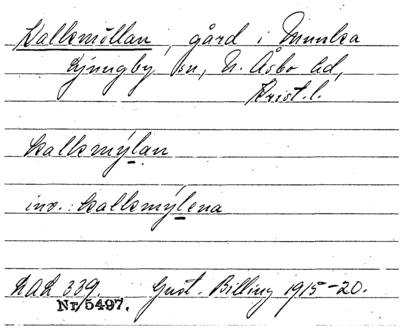 Kalkmöllan, gård i Munka
Ljungby sn, N. Åsbo hd,
Krist. l.
kalkmýlan
inv.: kalkmýlena
LAL 339. Gust. Billing 1915-20.
Nr/5497.